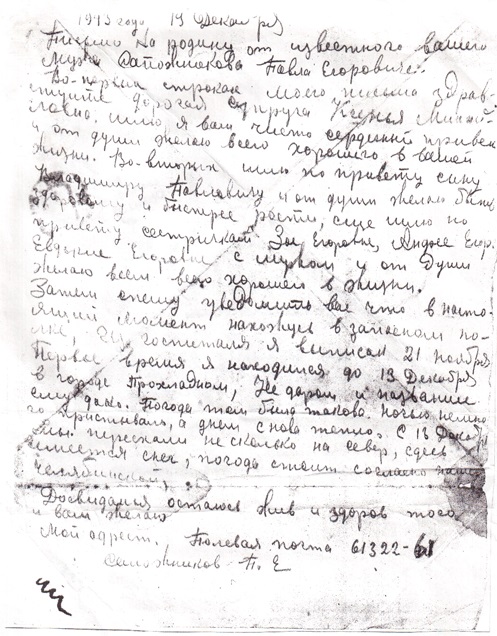 1943 года 19 Декабря
Письмо на родину от известного вашего
мужа Сапожникова Павла Егоровича.
Во-первых строках моего письма здрав-
ствуйте дорогая супруга Ксенья
шлю я вам чисто сердечный привет
и от души желаю всего хорошего в вашей
жизни. Во-вторых шлю по привету сыну
Владимиру Павловичу и от души желаю быть
здоровому и быстрее рости, еще шлю по
привету сестричкам Зое Егоровне, Егор.
Евдокие Егоровне с мужом и от души
желаю всем всего хорошего в жизни.
Затем спешу уведомить вас что в насто-
ящий момент нахожусь в запасном по-
лке, Из госпиталя я выписан 21 ноября
Первое время я находился до 13 Декабря
в городе Прохладном, Не даром и название
ему дано. Погода там была такова. Ночью немно
го пристывало, а днем снова тепло. С 13 Декаб
мы переехали не сколько на север, сдесь
имеется снег, погода стоит согласно нашей
челябинской,
Досвидания остаюсь жив и здоров того
и вам желаю
Мой адрест. Полевая почта 61322-
Сапожников П. Е